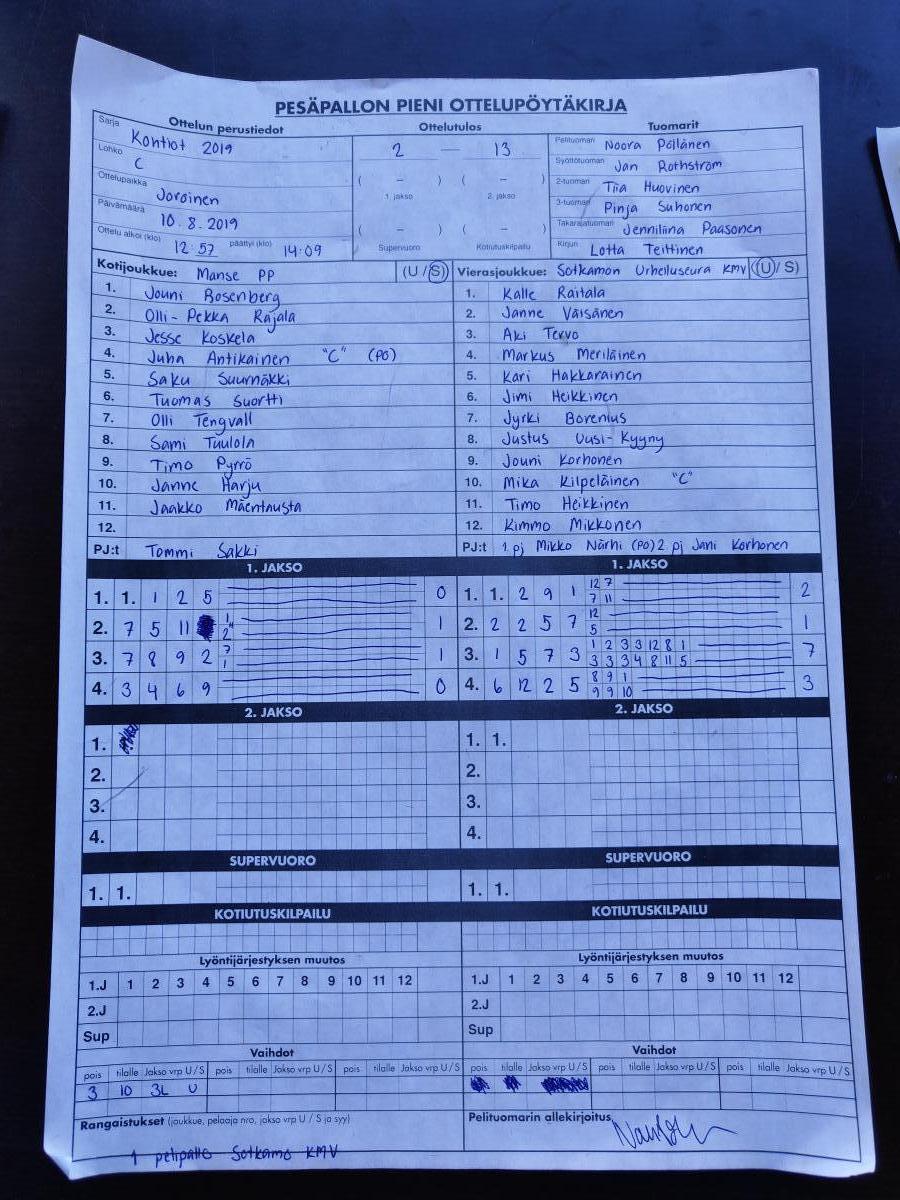 PESÄPALLON PIENI OTTELUPÖYTÄKIRJA
Ottelun perustiedot
Sarja Kontiot 2019
Lohko C
Ottelupaikka Joroinen
Päivämäärä 10.8.2019
Ottelu alkoi (klo) 12:57 päättyi (klo) 14:09
Ottelutulos
2 — 13
( – ) ( – )
1. jakso 2. jakso
( – ) ( – )
Supervuoro Kotiutuskilpailu
Tuomarit
Pelituomari Noora Pöllänen
Syöttötuomari Jan Rothström
2-tuomari Tiia Huovinen
3-tuomari Pinja Suhonen
Takarajatuomari Jenniliina Paasonen
Kirjuri Lotta Teittinen
Kotijoukkue: Manse PP (U / S)
1. Jouni Rosenberg
2. Olli-Pekka Rajala
3. Jesse Koskela
4. Juha Antikainen "C" (PO)
5. Saku Suurnäkki
6. Tuomas Suortti
7. Olli Tengvall
8. Sami Tuulola
9. Timo Pyrrö
10. Janne Harju
11. Jaakko Mäentausta
12.
PJ:t Tommi Sakki
Vierasjoukkue: Sotkamon Urheiluseura KMV (U / S)
1. Kalle Raitala
2. Janne Väisänen
3. Aki Tervo
4. Markus Meriläinen
5. Kari Hakkarainen
6. Jimi Heikkinen
7. Jyrki Borenius
8. Justus Uusi-Kyyny
9. Jouni Korhonen
10. Mika Kilpeläinen "C"
11. Timo Heikkinen
12. Kimmo Mikkonen
PJ:t 1. pj Mikko Närhi (PO) 2 pj Jani Korhonen
1. JAKSO
1. 1. 1 2 5 0
2. 7 5 11 1 2 1
3. 7 8 9 2 7 1 1
4. 3 4 6 9 0
1. JAKSO
1. 1. 2 9 1 12 7 2
7 11
2. 2 2 5 7 12 1
5
3. 1 5 7 3 1 2 3 3 12 8 1 7
3 3 3 4 8 11 5
4. 6 12 2 5 8 9 1 3
9 9 10
2. JAKSO
1.
2.
3.
4.
2. JAKSO
1. 1.
2.
3.
4.
SUPERVUORO
1. 1.
SUPERVUORO
1. 1.
KOTIUTUSKILPAILU
KOTIUTUSKILPAILU
Lyöntijärjestyksen muutos
1.J 1 2 3 4 5 6 7 8 9 10 11 12
2.J
Sup
Lyöntijärjestyksen muutos
1.J 1 2 3 4 5 6 7 8 9 10 11 12
2.J
Sup
Vaihdot
pois tilalle Jakso vrp U / S pois tilalle Jakso vrp U / S pois tilalle Jakso vrp U / S
3 10 3L U
Vaihdot
pois tilalle Jakso vrp U / S pois tilalle Jakso vrp U / S pois tilalle Jakso vrp U / S
Rangaistukset (joukkue, pelaaja nro, jakso vrp U / S ja syy)
1 pelipallo Sotkamo KMV
Pelituomarin allekirjoitus